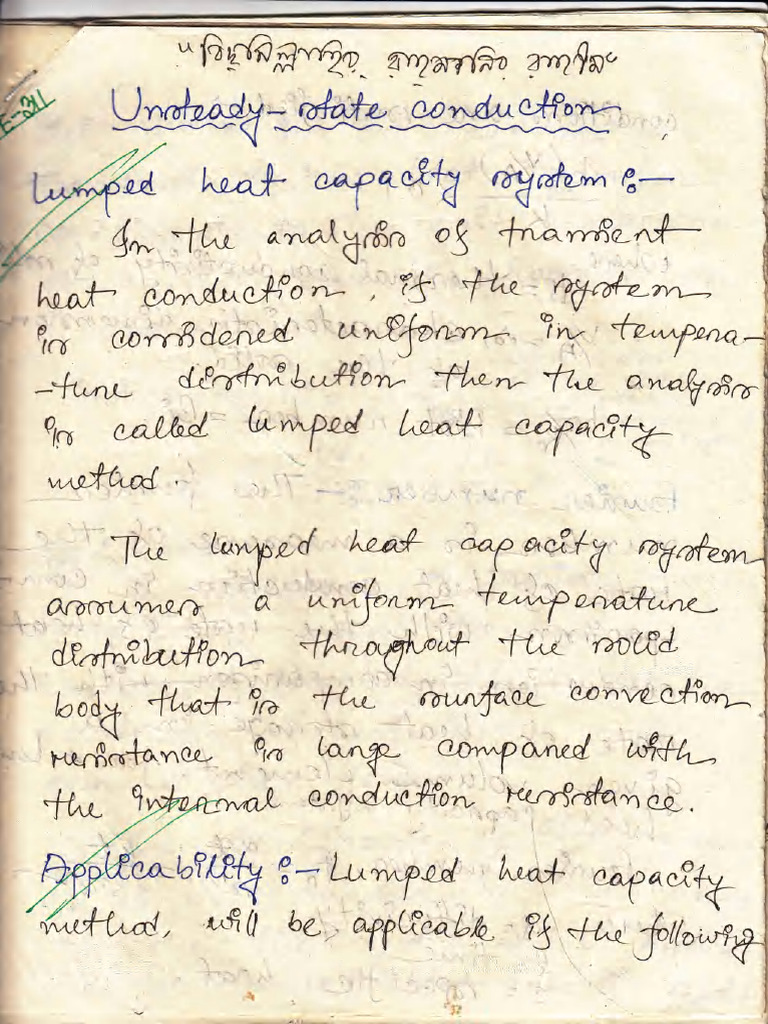 "বিছমিল্লাহির রাহমানির রাহিম"
E-311
Unsteady-state conduction
Lumped heat capacity system :-
In the analysis of transient
heat conduction, if the system
is considered uniform in tempera-
-ture distribution then the analysis
is called lumped heat capacity
method.
The lumped heat capacity system
assumes a uniform temperature
distribution throughout the solid
body that is the surface convection
resistance is large compared with
the internal conduction resistance.
Applicability :- Lumped heat capacity
method, will be applicable if the following